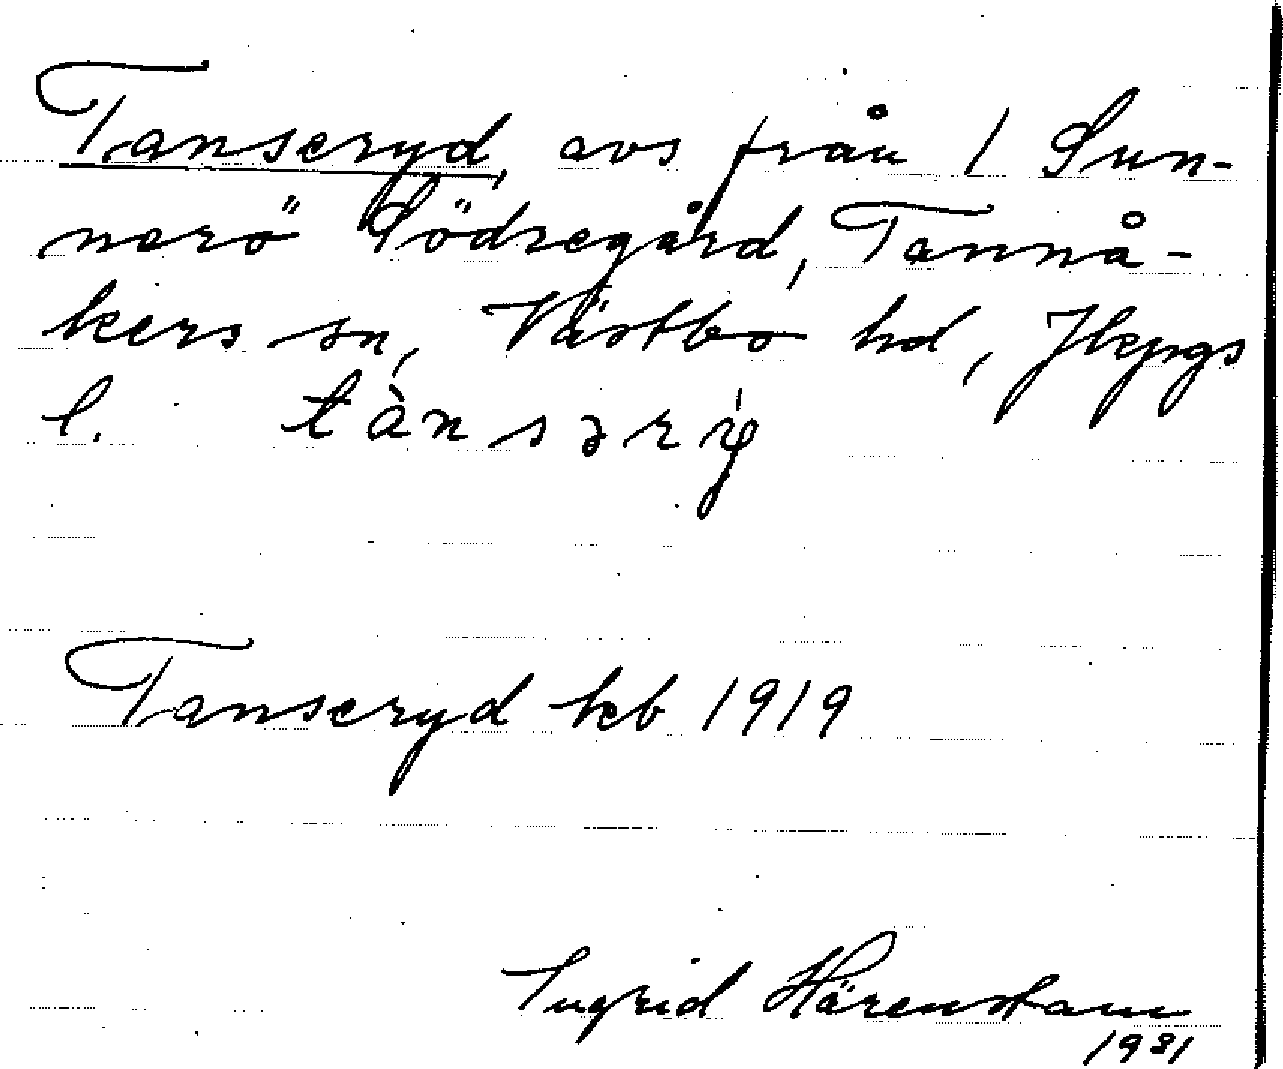 Tanseryd, avs från 1 Sun-
nerö Södregård, Tannå-
kers sn, Västbo hd, Jkpgs
l. tànsərý
Tanseryd kb 1919
Ingrid Härenstam
1931